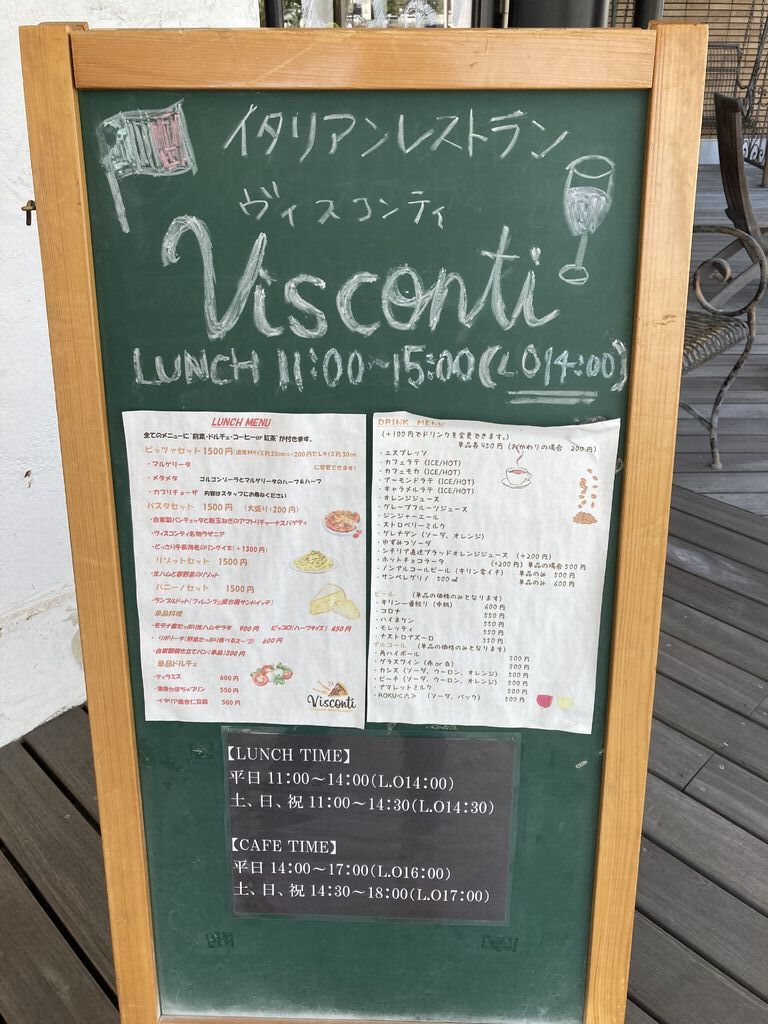 イタリアンレストラン
ヴィスコンティ
Visconti
LUNCH 11:00~15:00(LO14:00)
LUNCH MENU
全てのメニューに"前菜・ドルチェ・コーヒーor 紅茶"が付きます。
ピッツァセット 1500円 (通常Mサイズ約20cm⇒+200円でLサイズ約30cm
に変更できます)
・マルゲリータ
・メタメタ ゴルゴンゾーラとマルゲリータのハーフ&ハーフ
・カプリチョーザ 内容はスタッフにお尋ねください
パスタセット 1500円 (大盛り+200円)
・自家製パンチェッタと新玉ねぎのアマトリチャーナスパゲティ
・ヴィスコンティ名物ラザニア
・どっさり手長海老のリングイネ(+1300円)
リゾットセット 1500円
・生ハムと春野菜のリゾット
パニーノセット 1500円
・ランプルドット(フィレンツェ屋台風サンドイッチ)
単品料理
・モデナ産たっぷり生ハムサラダ 900円 ピッコロ(ハーフサイズ) 450円
・リボリータ(野菜たっぷり食べるスープ) 600円
・自家製焼き立てパン(単品)200円
単品ドルチェ
・ティラミス 600円
・濃厚かぼちゃプリン 550円
・イタリア風杏仁豆腐 500円
Visconti
DRINK MENU
(+100円でドリンクを変更できます。)
単品各450円(おかわりの場合 200円)
・エスプレッソ
・カフェラテ (ICE/HOT)
・カフェモカ (ICE/HOT)
・アーモンドラテ (ICE/HOT)
・キャラメルラテ (ICE/HOT)
・オレンジジュース
・グレープフルーツジュース
・ジンジャーエール
・ストロベリーミルク
・グレナデン (ソーダ、オレンジ)
・ゆずみつソーダ
・シチリア直送ブラッドオレンジジュース (+200円)
・ホットチョコラータ (+200円) 単品の場合500円
・ノンアルコールビール (キリン零イチ) 単品のみ 500円
・サンペレグリノ 500ml 単品のみ 600円
ビール (単品の価格のみとなります)
・キリン一番搾り (中瓶) 600円
・コロナ 550円
・ハイネケン 550円
・モレッティ 550円
・ナストロアズーロ 550円
アルコール (単品の価格のみとなります)
・角ハイボール 500円
・グラスワイン (赤or白) 500円
・カシス (ソーダ、ウーロン、オレンジ) 500円
・ピーチ (ソーダ、ウーロン、オレンジ) 500円
・アマレットミルク 500円
・ROKU<六> (ソーダ、バック) 500円
【LUNCH TIME】
平日 11:00~14:00(L.O14:00)
土、日、祝 11:00~14:30(L.O14:30)
【CAFE TIME】
平日 14:00~17:00(L.O16:00)
土、日、祝 14:30~18:00(L.O17:00)